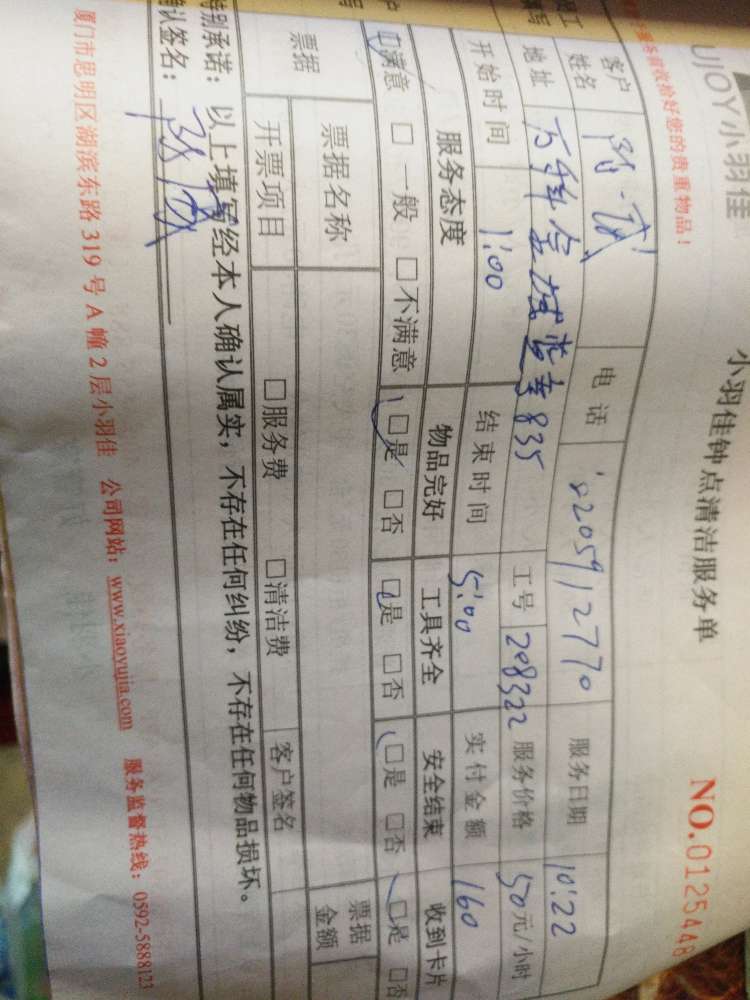 UJOY小羽佳
小羽佳钟点清洁服务单
NO.0125448
收拾好您的贵重物品！
客户姓名 电话 服务日期 10:22
地址 835 工号 208322 服务价格 50元/小时
开始时间 1:00 结束时间 5:00 实付金额 160
服务态度 物品完好 工具齐全 安全结束 收到卡片
□满意 □一般 □不满意 □是 □否 □是 □否 □是 □否 □是 □否
票据 票据名称 票据金额
开票项目 □服务费 □清洁费 客户签名
特别承诺：以上填写经本人确认属实，不存在任何纠纷，不存在任何物品损坏。
确认签名：
厦门市思明区湖滨东路 319 号 A 幢 2 层小羽佳 公司网站：www.xiaoyujia.com 服务监督热线：0592-5888123